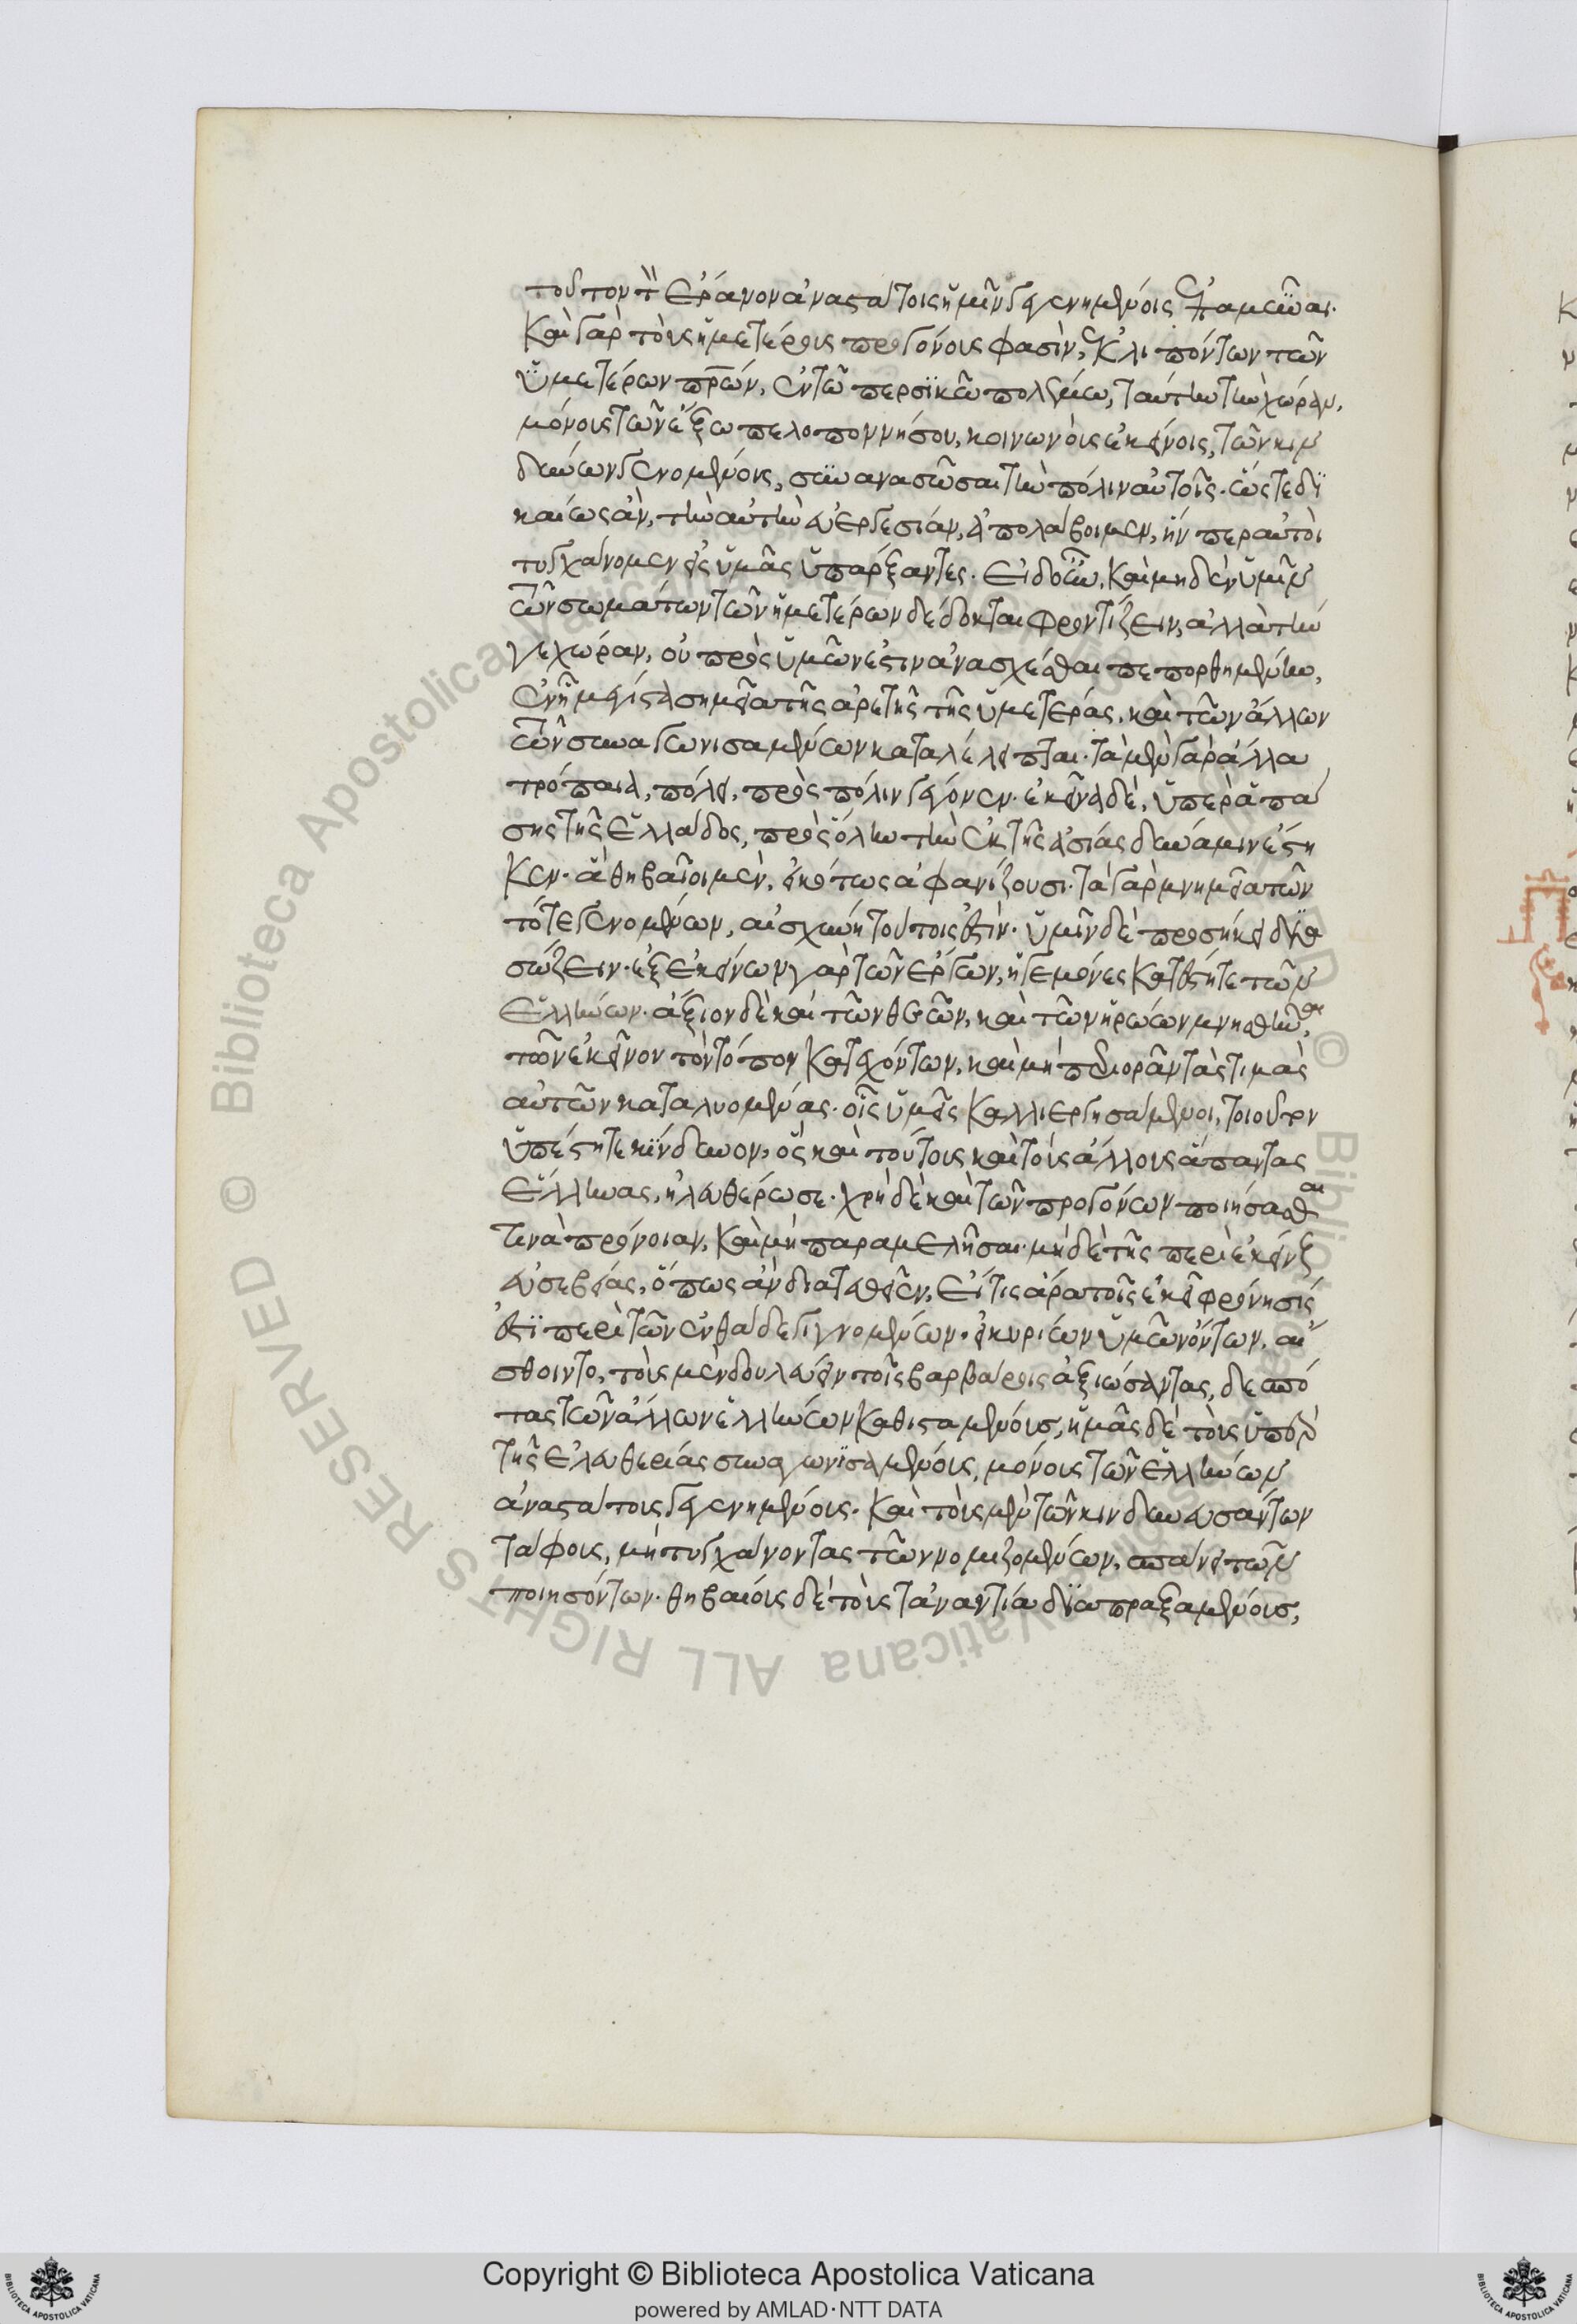 τοῦτον τὸν ἔρανον ἀναστάτοις ἡμῖν γεγενημένοις
καὶ γὰρ τοὺς ἡμετέρους προγόνους φασὶν, ἐκλιπόντων τῶν
ὑμετέρων πρῶν, ἐν τῶ περσϊκῶ πολέμω, ταύτην τὴν χώραν,
μόνους τῶν ἔξω πελοποννήσου, κοινωνοὺς ἐκείνοις, τῶν κιν
δύνων γενομένους, συνανασῶσαι τὴν πόλιν αὐτοῖς. ὥστε δϊ
καίως ἂν, τὴν αὐτὴν εὐεργεσίαν, ἀπολάβοιμεν, ἥν περ αὐτοὶ
τυγχάνομεν εἰς ὑμᾶς ὑπάρξαντες. εἰ δ' οὖν, καὶ μηδὲν ὑμῖν
τῶν σωμάτων τῶν ἡμετέρων δέδοκται φροντίζειν, ἀλλὰ τήν
γε χώραν, οὐ πρὸς ὑμῶν ἐστιν ἀνασχέσθαι πεπορθημένην,
ἐν ἧ μέγιστα σημεῖα τῆς ἀρετῆς τῆς ὑμετέρας, καὶ τῶν ἄλλων
τῶν συναγωνισαμένων καταλέλειπται. τὰ μὲν γὰρ ἄλλα
τρόπαια, πόλει, πρὸς πόλιν γέγονεν. ἐκεῖνα δὲ, ὑπὲρ ἁπά
σης τῆς ἑλλάδος, πρὸς ὅλην τὴν ἐκ τῆς ἀσίας δύναμιν ἕστη
κεν. ἃ θηβαῖοι μὲν, εἰκότως ἀφανίζουσι. τὰ γὰρ μνημεῖα τῶν
τότε γενομένων, αἰσχύνη τούτοις ἐστίν. ὑμῖν δὲ προσήκει δια
σώζειν. ἐξ ἐκείνων γὰρ τῶν ἔργων, ἡγεμόνες κατέστητε τῶν
ἑλλήνων. ἄξιον δὲ καὶ τῶν θεῶν, καὶ τῶν ἡρώων μνησθῆναι,
τῶν ἐκεῖνον τὸν τόπον κατεχόντων, καὶ μὴ περιορᾶν τὰς τιμὰς
αὐτῶν καταλυομένας. οἷς ὑμεῖς καλλιερησάμενοι, τοιοῦτον
ὑπέστητε κίνδυνον, ὃς καὶ τούτους καὶ τοὺς ἄλλους ἅπαντας
ἕλληνας, ἠλευθέρωσε. χρὴ δὲ καὶ τῶν προγόνων ποιήσασθαι
τινὰ πρόνοιαν, καὶ μὴ παραμελῆσαι. μὴ δὲ τῆς περὶ ἐκείνους
εὐσεβείας, ὅπως ἂν διατεθεῖεν, εἴ τις ἄρα τοῖς ἐκεῖ φρόνησίς
ἐστϊ περὶ τῶν ἐνθάδε γιγνομένων. εἰ κυρίων ὑμῶν ὄντων, αἴ
σθοιντο, τοὺς μὲν δουλεύειν τοῖς βαρβάροις ἀξιώσαντας, δεσπό
τας τῶν ἄλλων ἑλλήνων καθισταμένους, ἡμᾶς δὲ τοὺς ὑπὲρ
τῆς ἐλευθερίας συναγωνϊσαμένους, μόνους τῶν ἑλλήνων
ἀναστάτους γεγενημένους. καὶ τοὺς μὲν τῶν κινδυνευσάντων
τάφους, μὴ τυγχάνοντας τῶν νομιζομένων, σπάνει τῶν
ποιησόντων. θηβαίους δὲ τοὺς τἀναντία δϊαπραξαμένους,
© Biblioteca Apostolica Vaticana ALL RIGHTS RESERVED
Copyright © Biblioteca Apostolica Vaticana
powered by AMLAD·NTT DATA